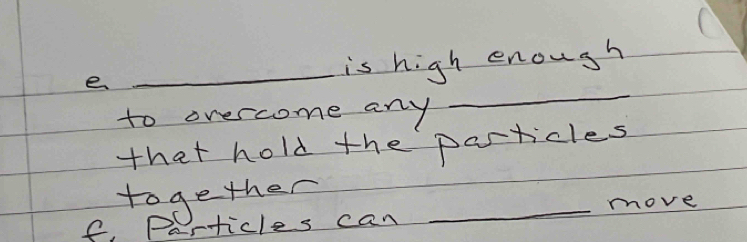 e. __________ is high enough
to overcome any __________
that hold the particles
together
f. Particles can __________ move